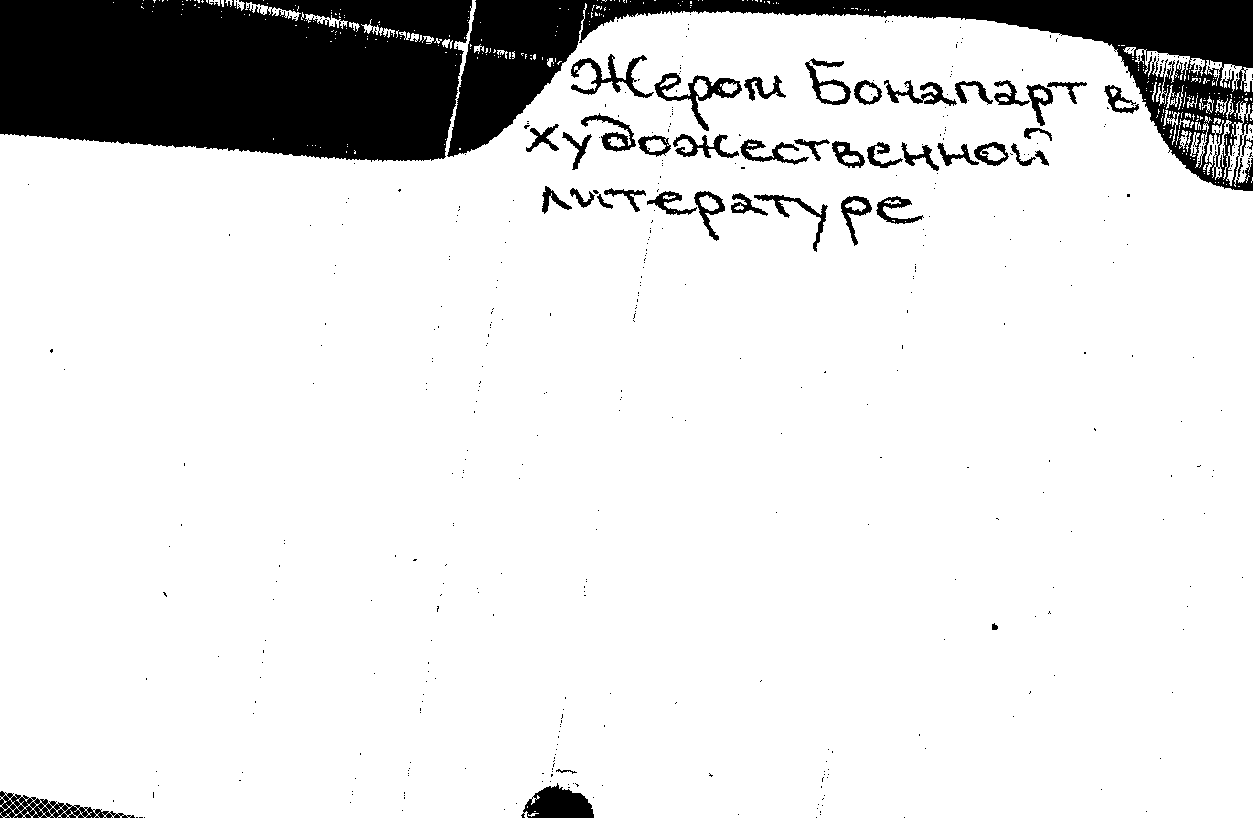 Жером Бонапарт в
художественной
литературе